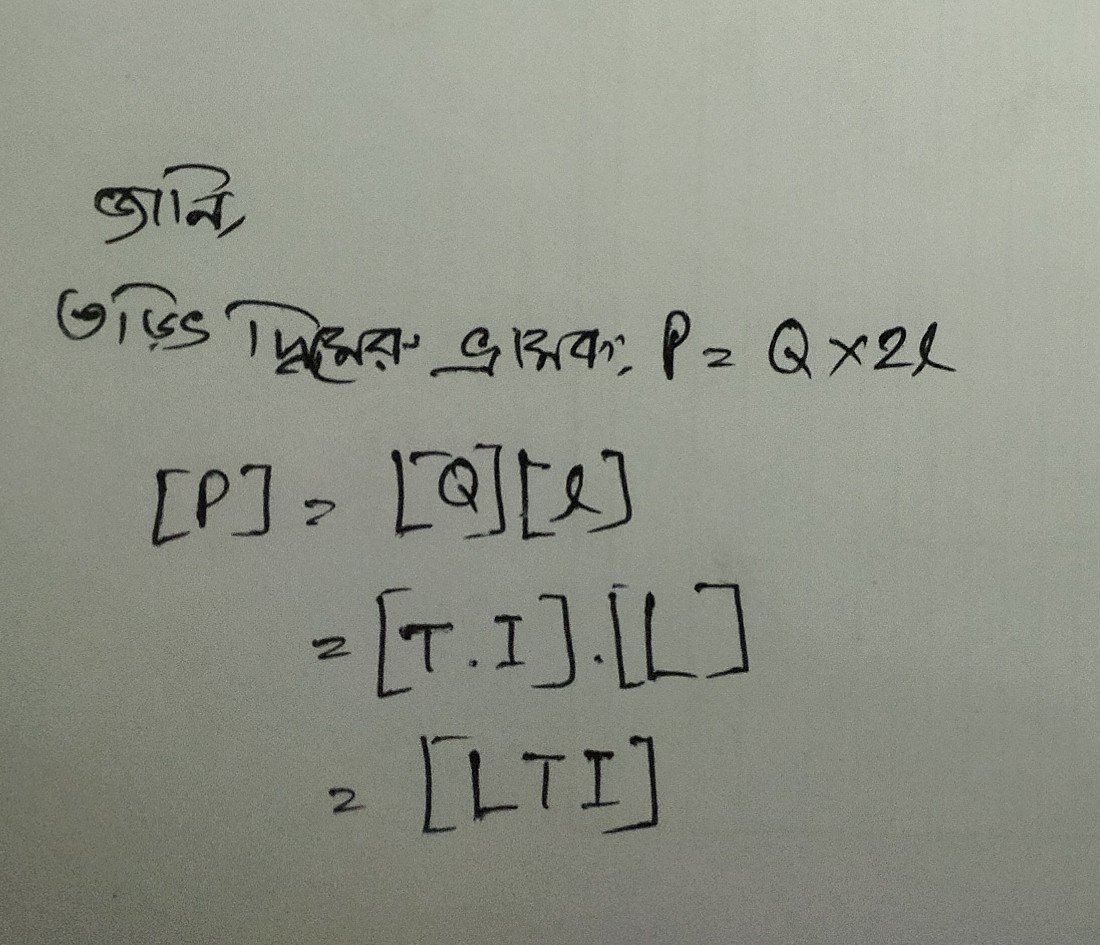 জানি,
তড়িৎ দ্বিমেরু ভ্রামক, P = Q × 2l
[P] = [Q][l]
= [T.I].[L]
= [LTI]